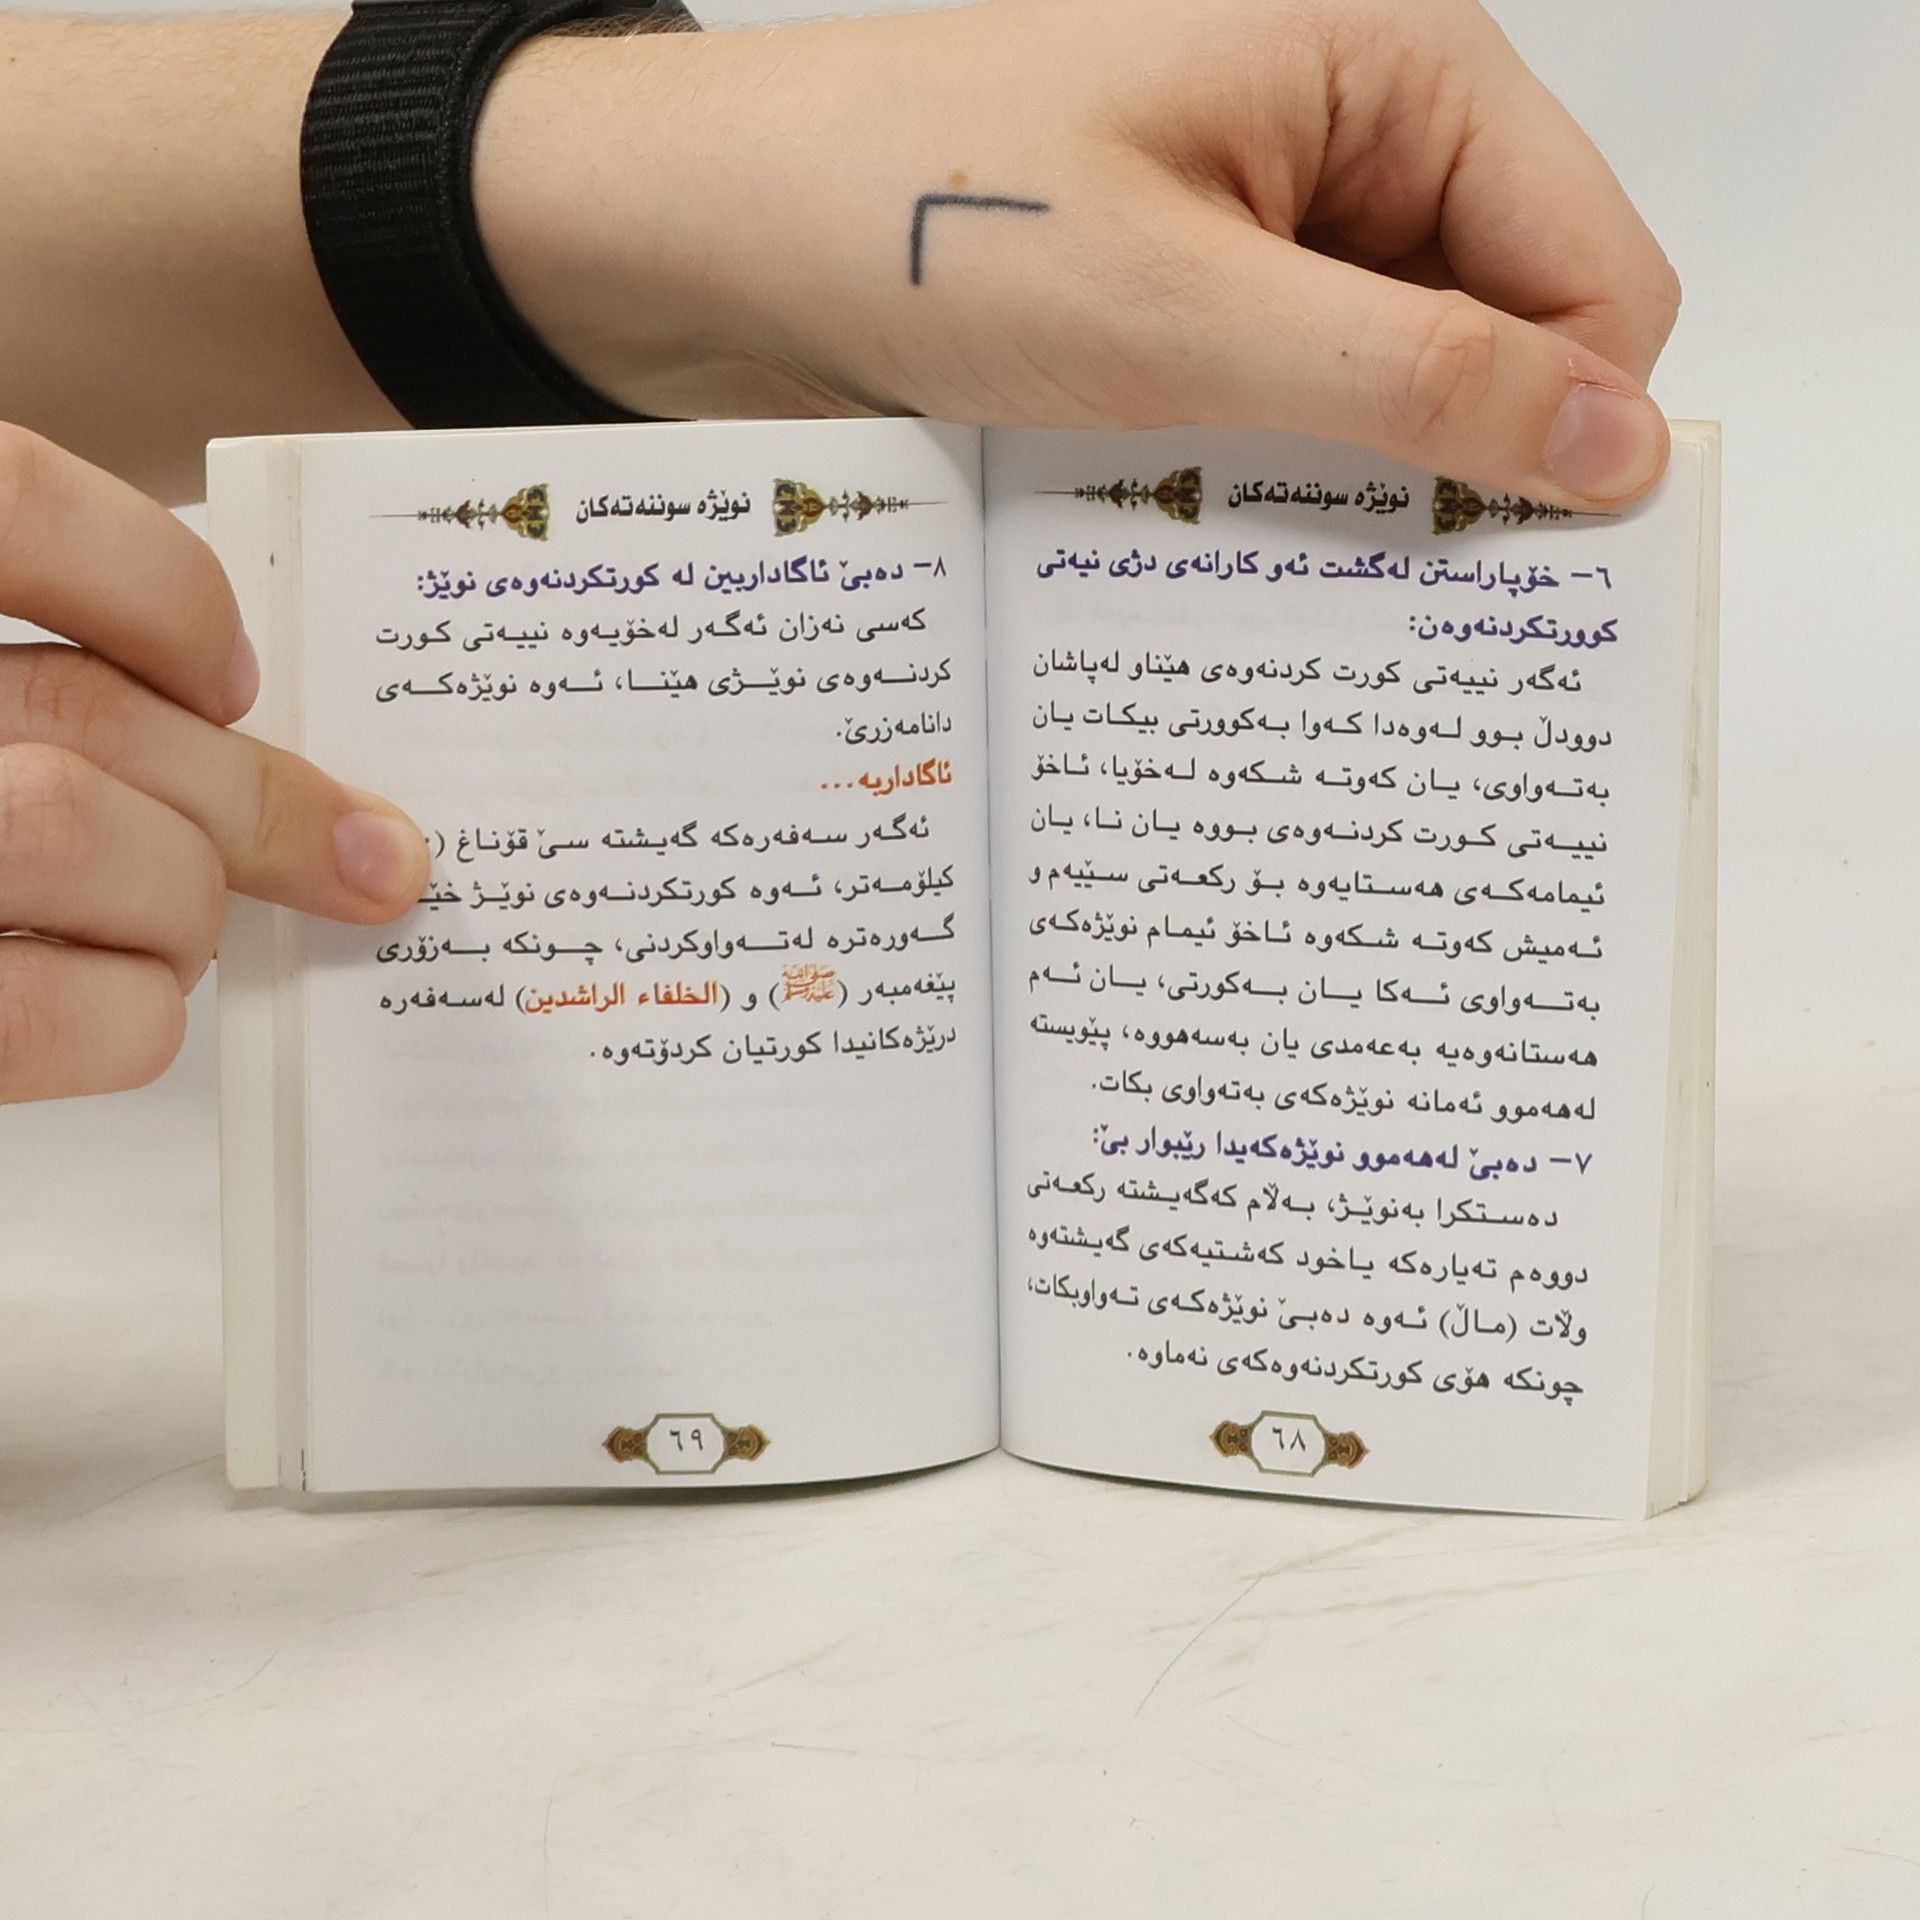 نوێژە سوننەتەکان
٦– خۆپاراستن لەگشت ئەو کارانەی دژی نیەتی
کوورتکردنەوەن:
ئەگەر نییەتی کورت کردنەوەی هێناو لەپاشان
دوودڵ بوو لەوەدا کەوا بەکوورتی بیکات یان
بەتەواوی، یان کەوتە شکەوە لەخۆیا، ئاخۆ
نییەتی کورت کردنەوەی بووە یان نا، یان
ئیمامەکەی هەستایەوە بۆ رکعەتی سێیەم و
ئەمیش کەوتە شکەوە ئاخۆ ئیمام نوێژەکەی
بەتەواوی ئەکا یان بەکورتی، یان ئەم
هەستانەوەیە بەعەمدی یان بەسەهووە، پێویستە
لەهەموو ئەمانە نوێژەکەی بەتەواوی بکات.
٧– دەبێ لەهەموو نوێژەکەیدا رێبوار بێ:
دەستکرا بەنوێژ، بەڵام کەگەیشتە رکعەتی
دووەم تەیارەکە یاخود کەشتیەکەی گەیشتەوە
وڵات (ماڵ) ئەوە دەبێ نوێژەکەی تەواوبکات،
چونکە هۆی کورتکردنەوەکەی نەماوە.
٦٨
نوێژە سوننەتەکان
٨– دەبێ ئاگاداربین لە کورتکردنەوەی نوێژ:
کەسی نەزان ئەگەر لەخۆیەوە نییەتی کورت
کردنەوەی نوێژی هێنا، ئەوە نوێژەکەی
دانامەزرێ.
ئاگاداریە...
ئەگەر سەفەرەکە گەیشتە سێ قۆناغ (
کیلۆمەتر، ئەوە کورتکردنەوەی نوێژ
گەورەترە لەتەواوکردنی، چونکە بەزۆری
پێغەمبەر (ﷺ) و (الخلفاء الراشدین) لەسەفەرە
درێژەکانیدا کورتیان کردۆتەوە.
٦٩